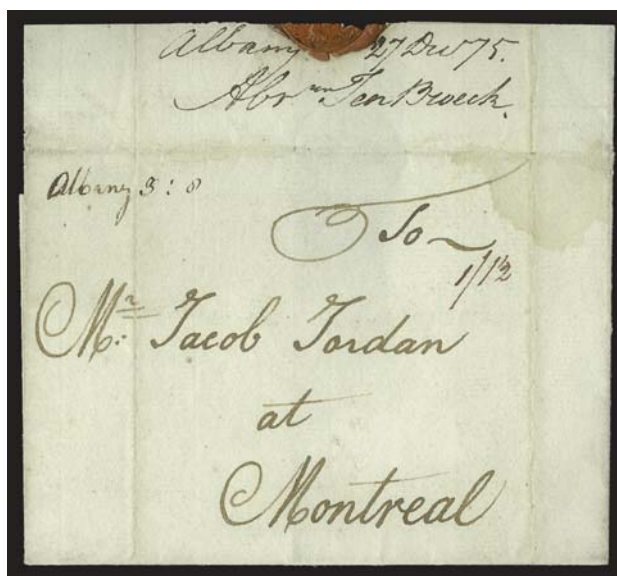 Albany 27 Dec 75.
Abrm Ten Broeck.
Albany 3: 8
To
1/12
Mr: Jacob Jordan
at
Montreal